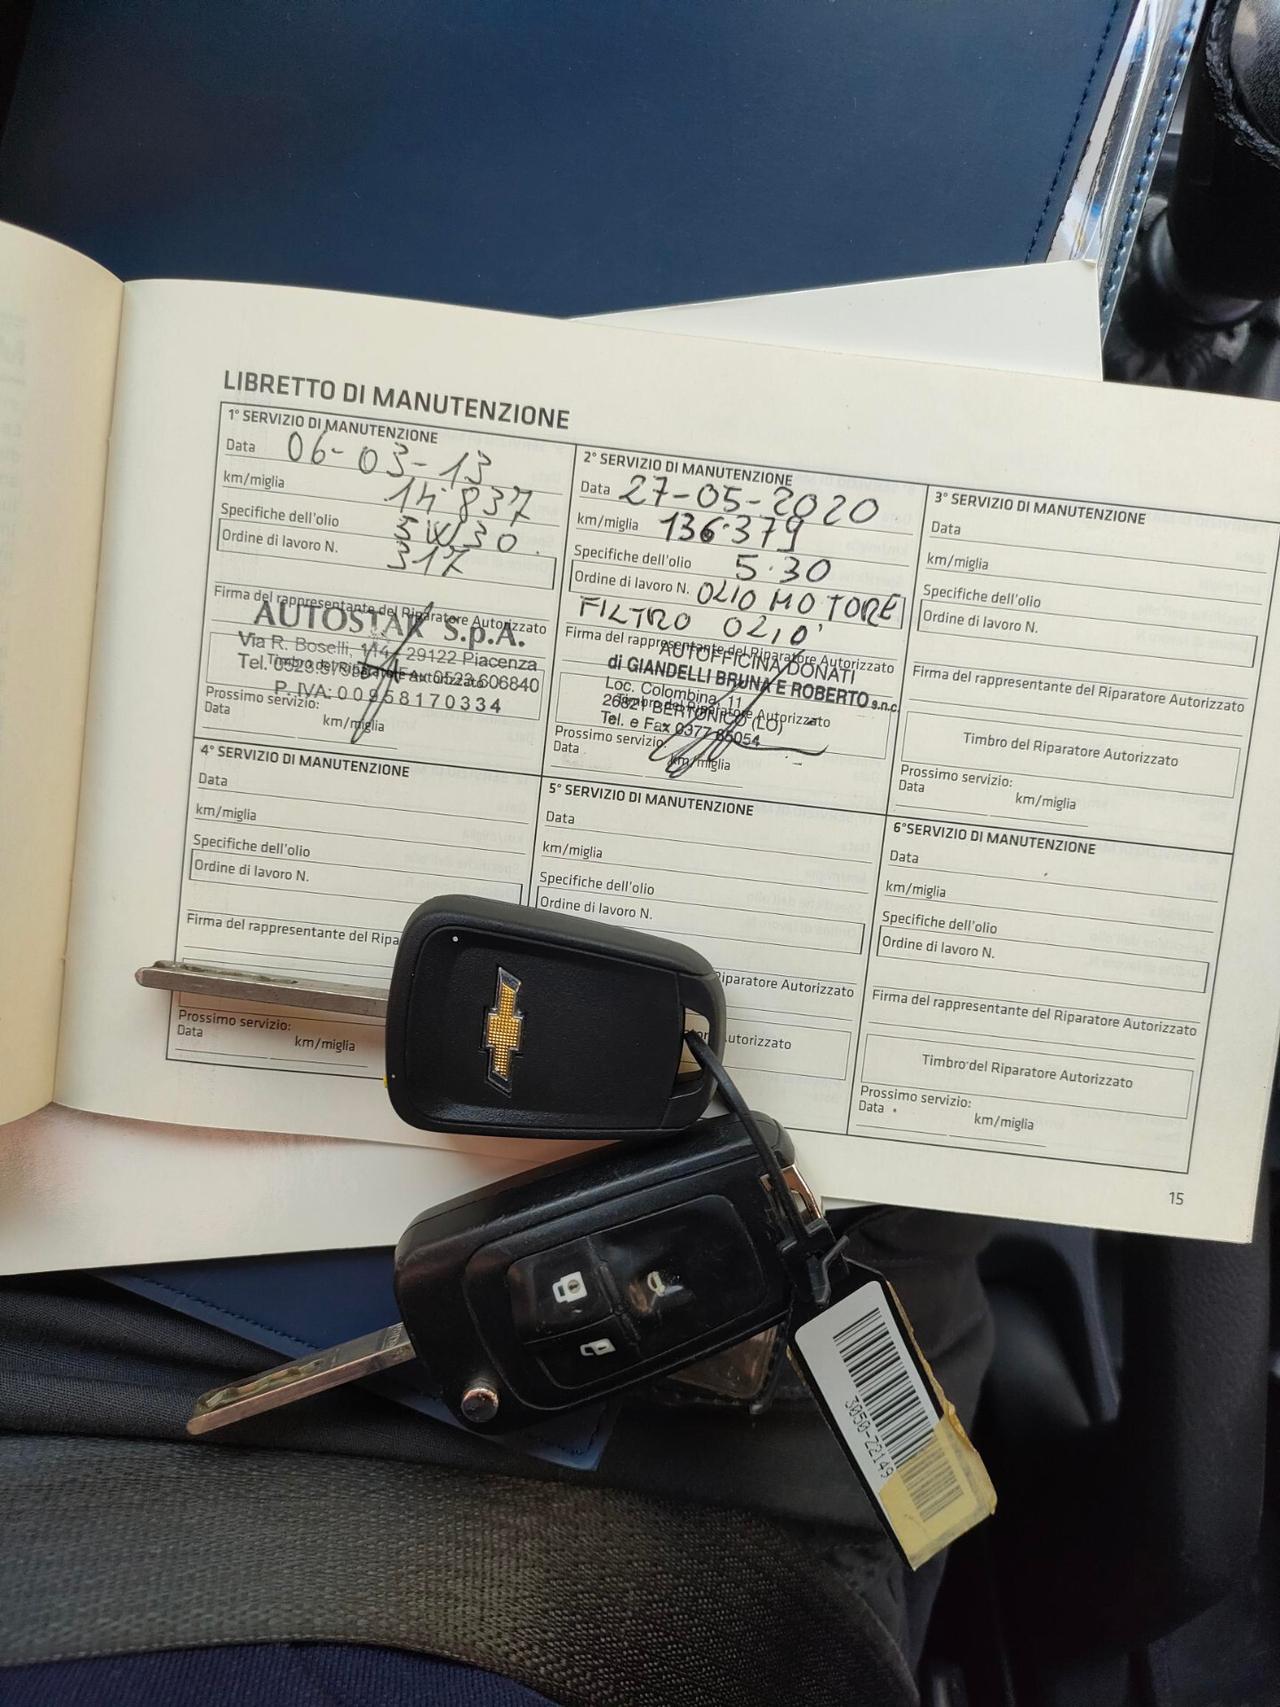 LIBRETTO DI MANUTENZIONE
1° SERVIZIO DI MANUTENZIONE
Data 06-03-13
km/miglia 14.837
Specifiche dell'olio 5W30.
Ordine di lavoro N. 317
Firma del rappresentante del Riparatore Autorizzato
AUTOSTAR S.p.A.
Via R. Boselli, - 29122 Piacenza
Timbro del Riparatore Autorizzato
Tel. Fax 0523.606840
P. IVA: 00958170334
Prossimo servizio:
Data km/miglia
2° SERVIZIO DI MANUTENZIONE
Data 27-05-2020
km/miglia 136.379
Specifiche dell'olio 5.30
Ordine di lavoro N. OLIO MOTORE
FILTRO OLIO
Firma del rappresentante del Riparatore Autorizzato
AUTOFFICINA DONATI
di GIANDELLI BRUNA E ROBERTO s.n.c.
Loc. Colombina, 11
Timbro del Riparatore Autorizzato
26821 BERTONICO (LO)
Tel. e Fax 0377 85054
Prossimo servizio:
Data km/miglia
3° SERVIZIO DI MANUTENZIONE
Data
km/miglia
Specifiche dell'olio
Ordine di lavoro N.
Firma del rappresentante del Riparatore Autorizzato
Timbro del Riparatore Autorizzato
Prossimo servizio:
Data km/miglia
4° SERVIZIO DI MANUTENZIONE
Data
km/miglia
Specifiche dell'olio
Ordine di lavoro N.
Firma del rappresentante del Ripa
Prossimo servizio:
Data km/miglia
5° SERVIZIO DI MANUTENZIONE
Data
km/miglia
Specifiche dell'olio
Ordine di lavoro N.
Riparatore Autorizzato
Autorizzato
6°SERVIZIO DI MANUTENZIONE
Data
km/miglia
Specifiche dell'olio
Ordine di lavoro N.
Firma del rappresentante del Riparatore Autorizzato
Timbro del Riparatore Autorizzato
Prossimo servizio:
Data km/miglia
15
3050-22149